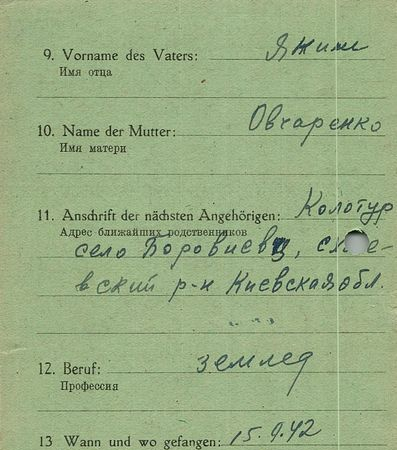 9. Vorname des Vaters: Яким
Имя отца
10. Name der Mutter: Овчаренко
Имя матери
11. Anschrift der nächsten Angehörigen: Колотур
Адрес ближайших родственников
село
вский р-н Киевская обл.
12. Beruf: землед
Профессия
13 Wann und wo gefangen: 15.9.42